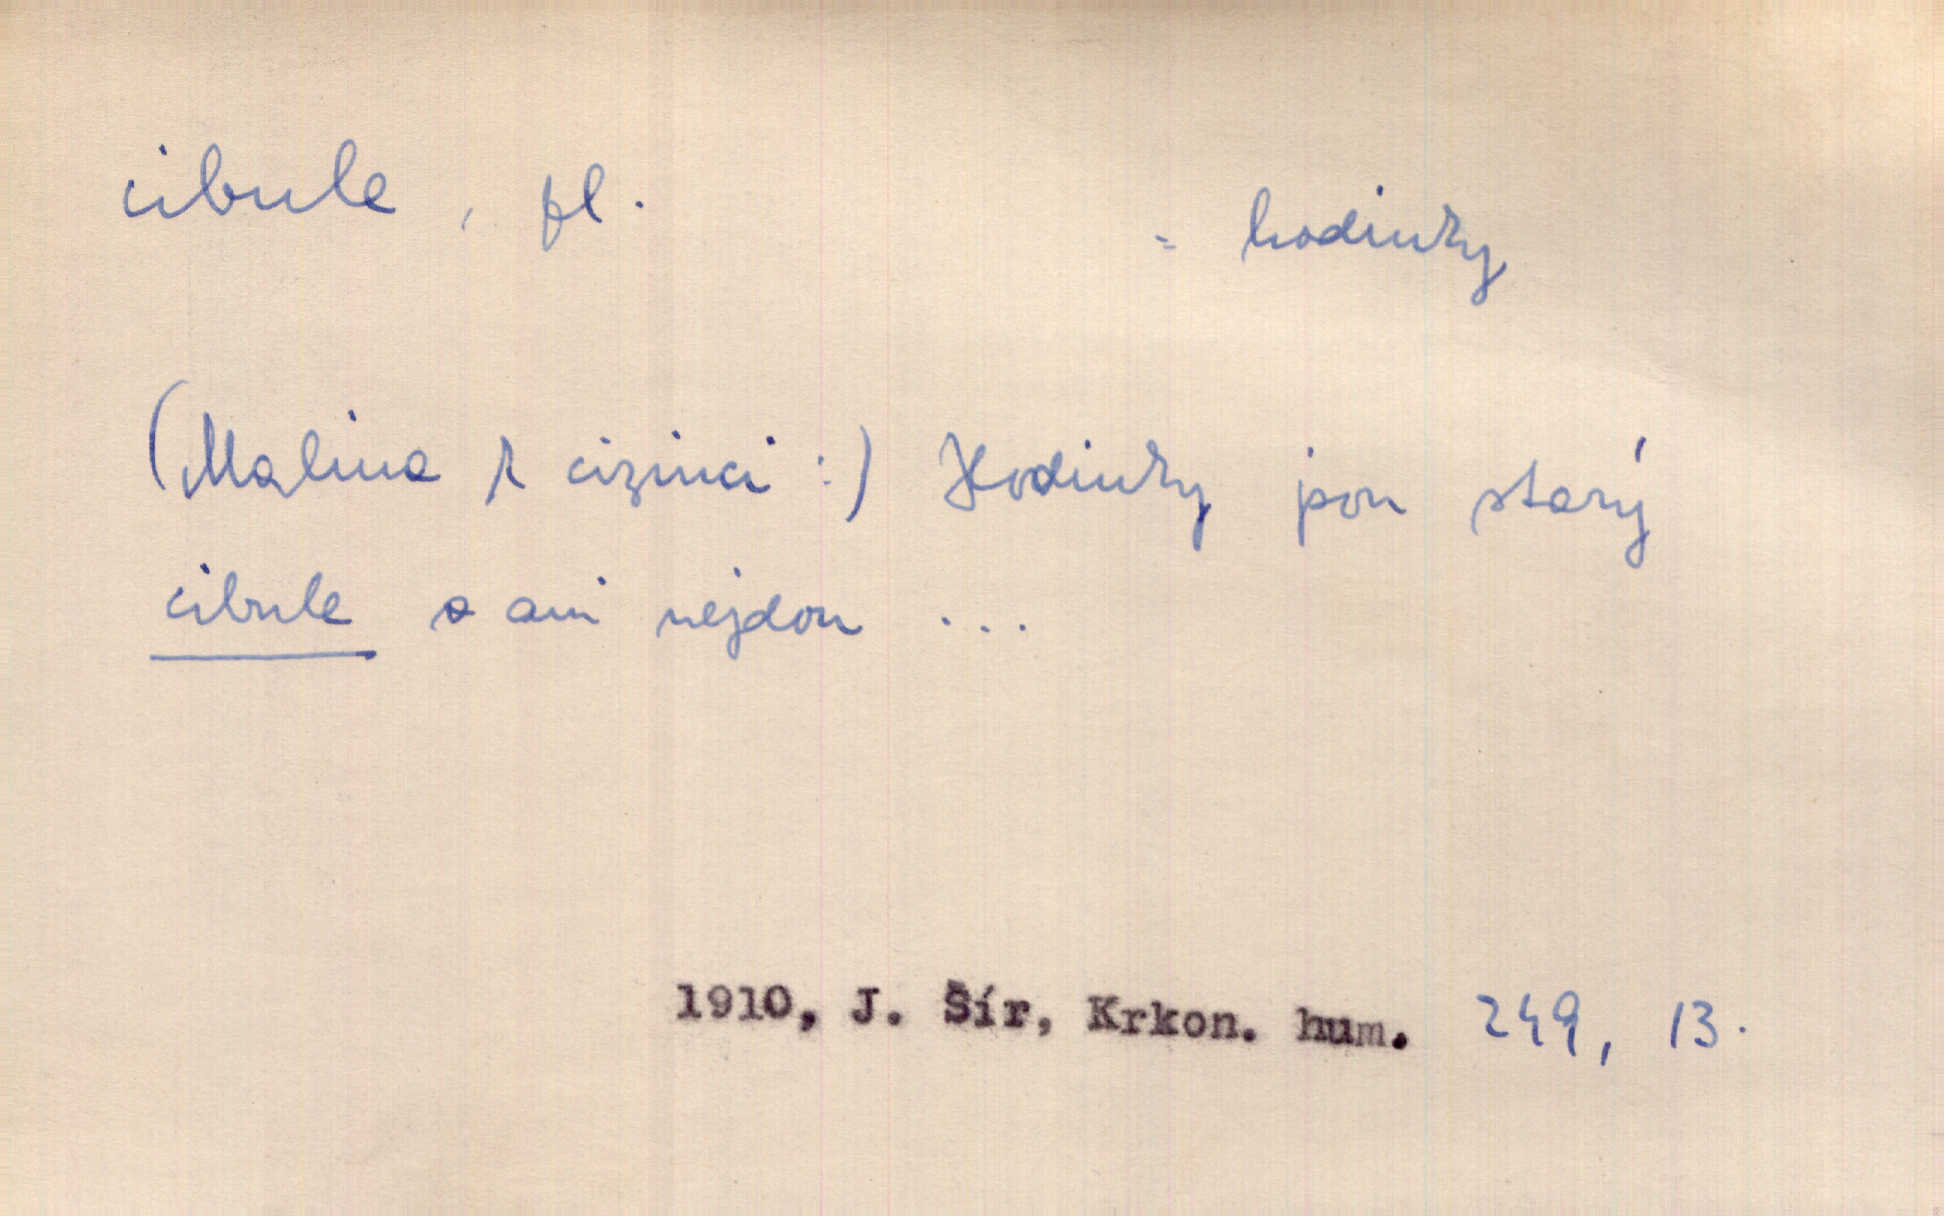 cibule, pl. = hodinky
(Malina k cizinci:) Hodinky jsou starý
cibule a ani nejdou ...
1910, J. Šír, Krkon. hum. 249, 13.